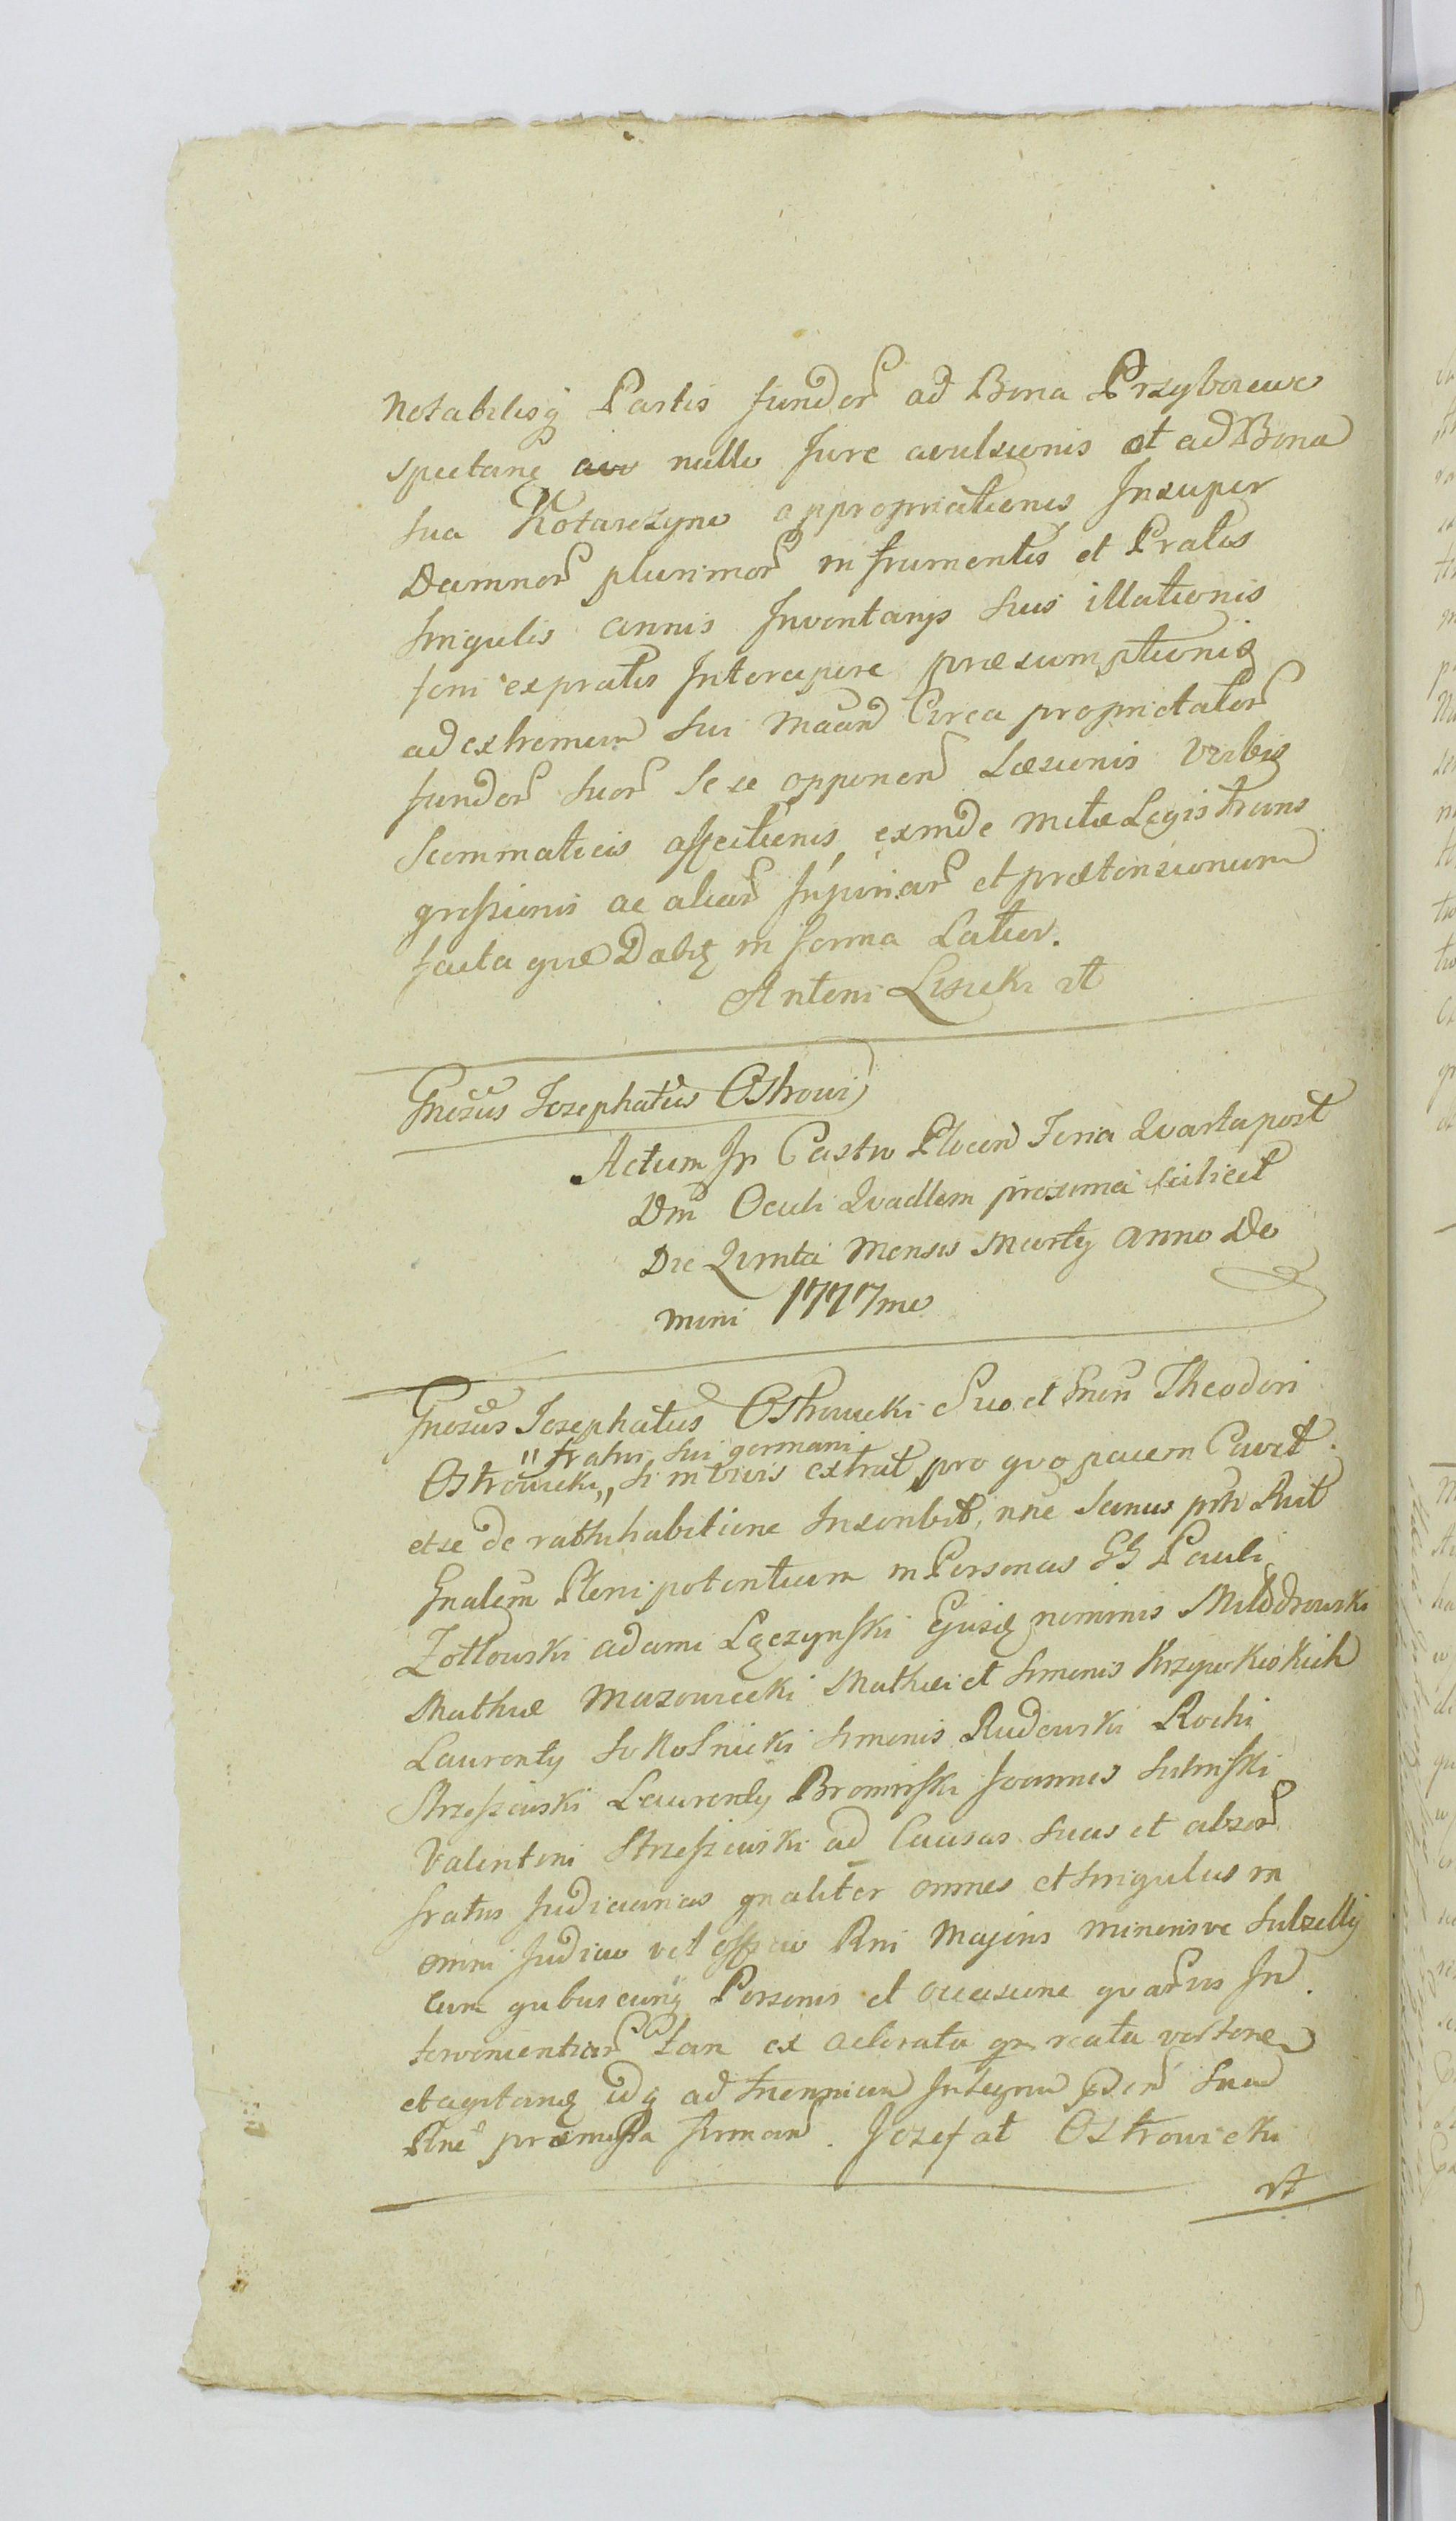 notabilisq̃ Partis fundor ad Bona Przyborowo
spectanę nullo Jure avulsionis et ad Bona
sua Kotarczyno appropriationis Insuper
Damnor plurimor in frumentis et Pratis
singulis annis Inventarijs suis illationis
foeni ex pratis Intercipere præsumptionis
ad extremum sui Circa proprietator
fundor suor sese opponen Læsionis Verbis
Scommaticis affectionis exinde metæ Legis trans
gressionis ac aliar Injuriar et prætensionum
facta quæ Dabit in forma Latior.
Antoni Lisicki
Gnosus Josephatus Ostrowi
Actum In Castro Plocen Feria Quarta post
Dm Oculi Quadlem proxima scilicet
Die Quinta Mensis Martij Anno Do
mini 1777mo
Gnosus Josephatus Ostrowicki Suo et Theodori
" fratris sui germani
Ostrowicki " si in vivis extrat pro quo pacem Cavet
et se de rathihabitione Inscribit, Sanus
Gnalem Plenipotentiam in Personas GG Pauli
Zołtowski Adami Łęczynski Ejusd nominis
Mathiæ Mazowiecki Mathæi et Simonis
Laurentij Sokolnicki Simonis Rudowski Rochi
Strzeszewski Laurentij Brominski Joannis
Valentini Strzeszewski ad Causas suas et
fratris Judiciarias gnaliter omnes et singulas in
omni Judicio vel officio Rni Majoris Minorisve Subsellij
cum quibuscunq̃ Personis et occasione quarvis In
tervenientiar tam ex actoratu qm reatu verten
et agitanę idq̃ ad triennium Integrum
præmissa firman. Jozefat Ostrowicki